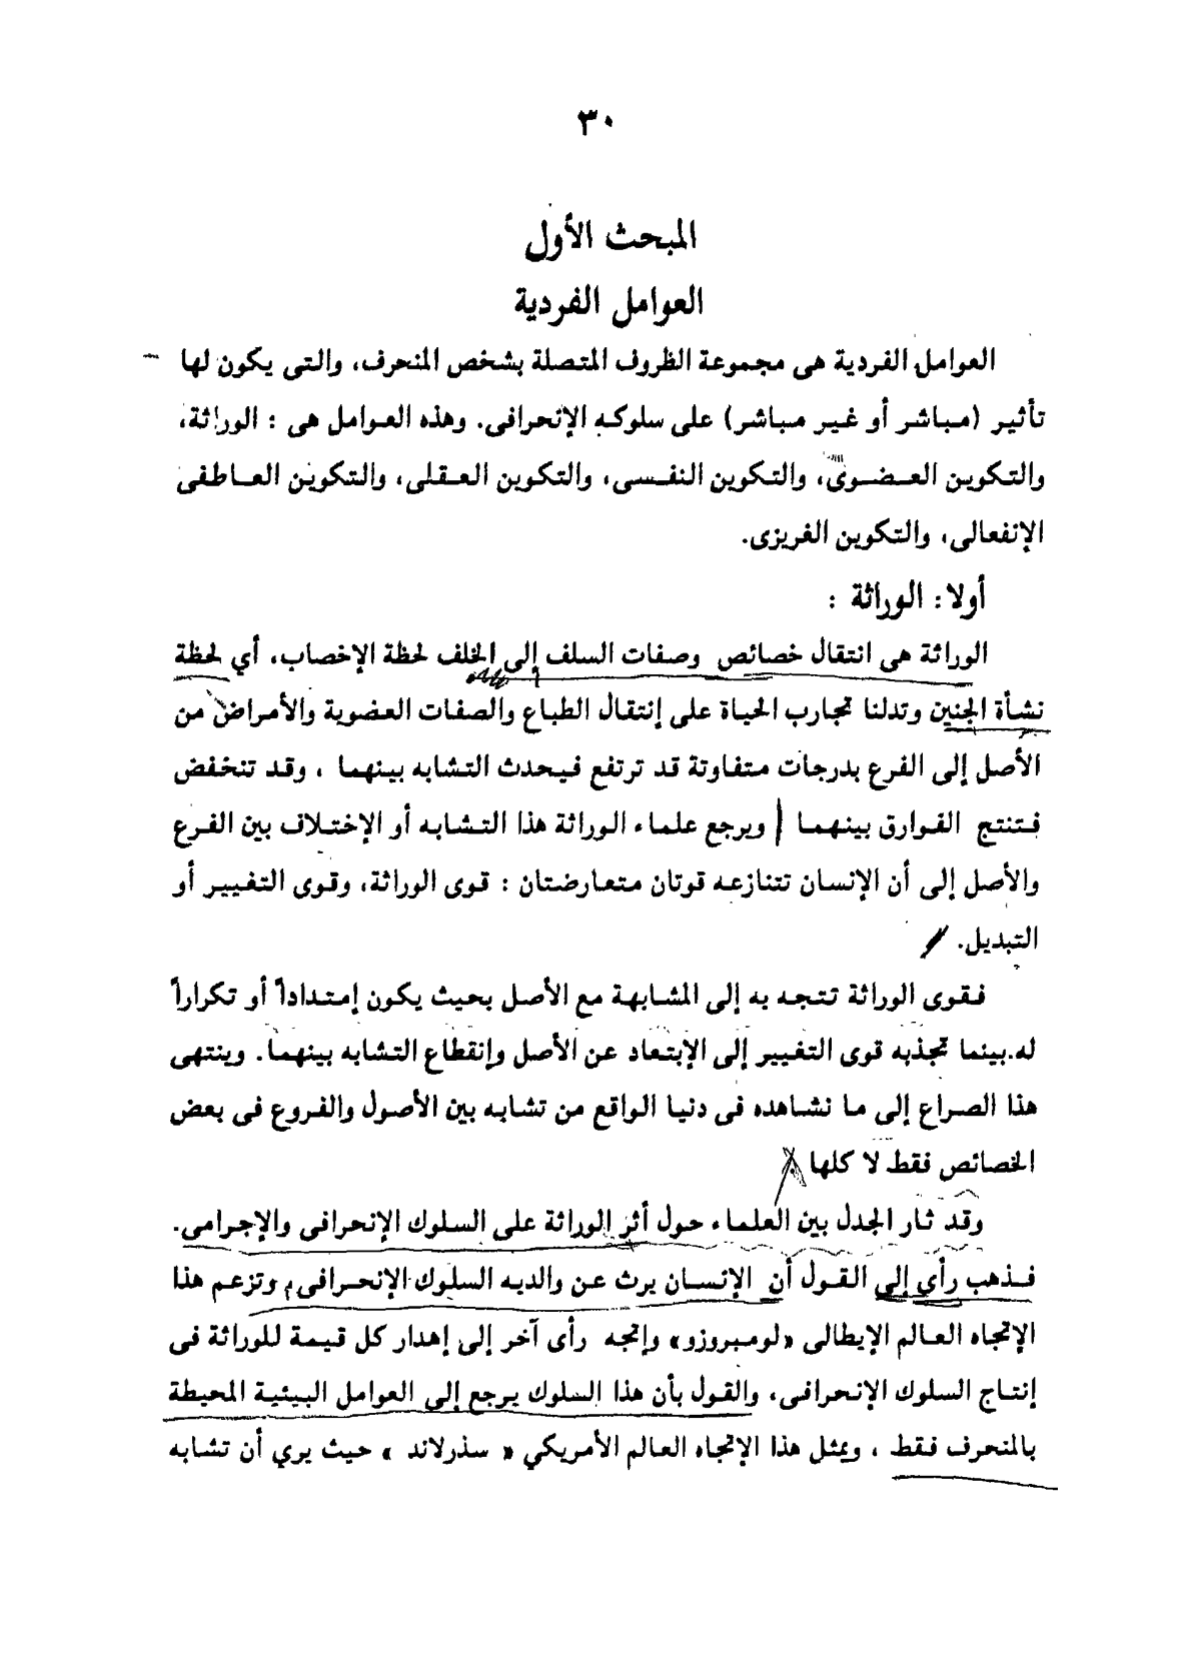 ٣٠
المبحث الأول
العوامل الفردية
العوامل الفردية هى مجموعة الظروف المتصلة بشخص المنحرف، والتى يكون لها
تأثير (مباشر أو غير مباشر) على سلوكه الإنحرافى. وهذه العوامل هى : الوراثة،
والتكوين العضوى، والتكوين النفسى، والتكوين العقلى، والتكوين العاطفى
الإنفعالى، والتكوين الغريزى.
أولا: الوراثة :
الوراثة هى انتقال خصائص وصفات السلف إلى الخلف لحظة الإخصاب، أي لحظة
نشأة الجنين وتدلنا تجارب الحياة على إنتقال الطباع والصفات العضوية والأمراض من
الأصل إلى الفرع بدرجات متفاوتة قد ترتفع فيحدث التشابه بينهما ، وقد تنخفض
فتنتج الفوارق بينهما ويرجع علماء الوراثة هذا التشابه أو الإختلاف بين الفرع
والأصل إلى أن الإنسان تتنازعه قوتان متعارضتان : قوى الوراثة، وقوى التغيير أو
التبديل.
فقوى الوراثة تتجه به إلى المشابهة مع الأصل بحيث يكون إمتداداً أو تكراراً
له.بينما تجذبه قوى التغيير إلى الإبتعاد عن الأصل وإنقطاع التشابه بينهما. وينتهى
هذا الصراع إلى ما نشاهده فى دنيا الواقع من تشابه بين الأصول والفروع فى بعض
الخصائص فقط لا كلها
وقد ثار الجدل بين العلماء حول أثر الوراثة على السلوك الإنحرافى والإجرامى.
فذهب رأى إلى القول أن الإنسان يرث عن والديه السلوك الإنحرافى، وتزعم هذا
الإتجاه العالم الإيطالى «لومبروزو» وإتجه رأى آخر إلى إهدار كل قيمة للوراثة فى
إنتاج السلوك الإنحرافى، والقول بأن هذا السلوك يرجع إلى العوامل البيئية المحيطة
بالمنحرف فقط ، ويمثل هذا الإتجاه العالم الأمريكي « سذرلاند » حيث يري أن تشابه